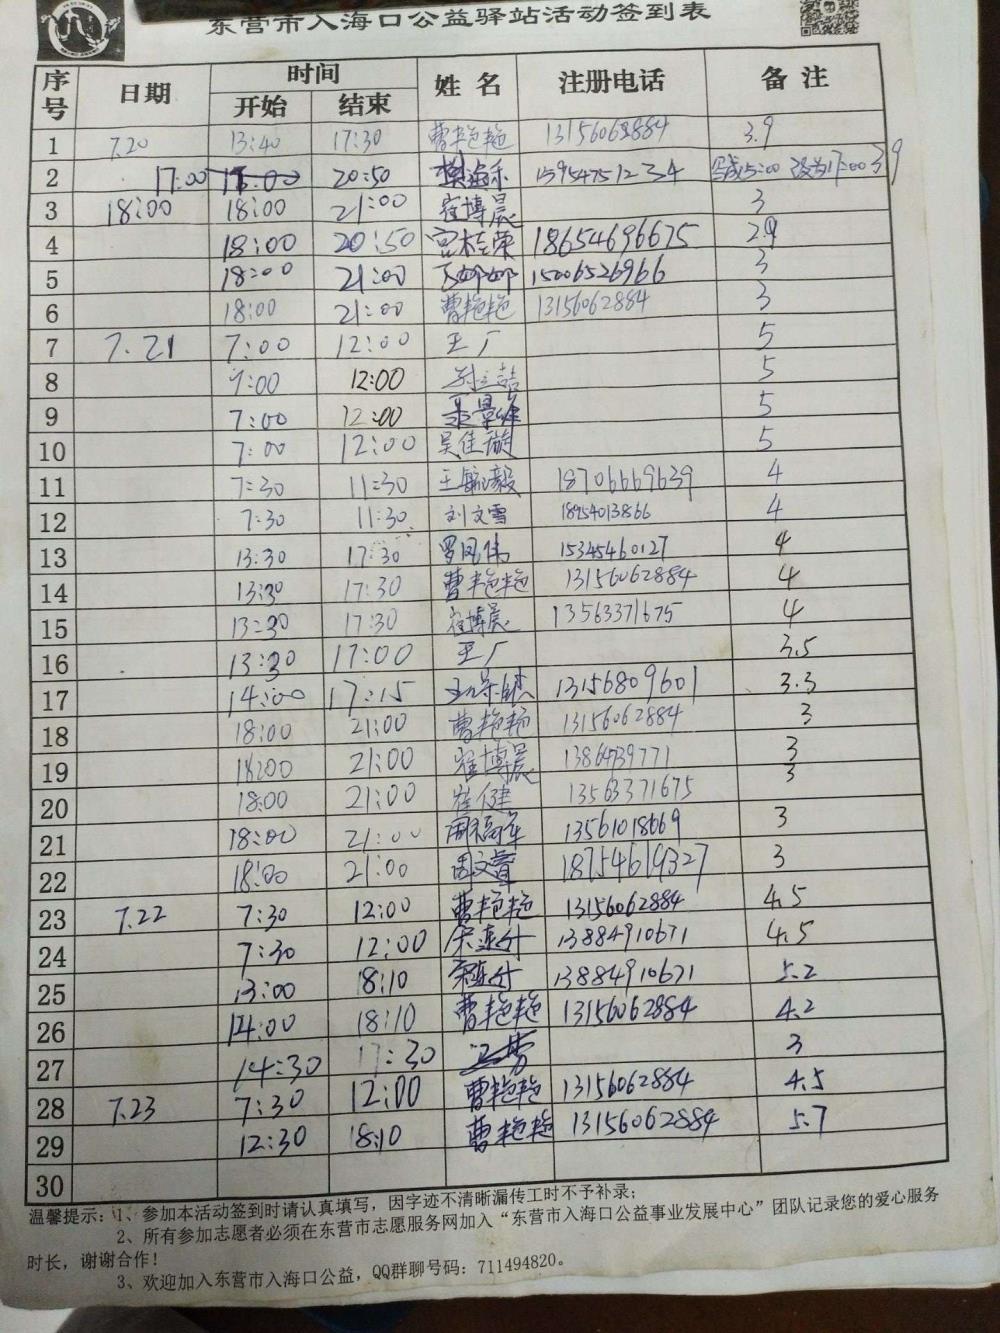 东营市入海口公益驿站活动签到表
序号 日期 时间 姓名 注册电话 备注
开始 结束
1 7.20 13:40 17:30 曹艳艳 13156062884 3.9
2 17:00 15:00 20:50 15954751234 写成15:00 改为17:00 3.9
3 18:00 18:00 21:00 崔博晨 3
4 18:00 20:50 宫桂荣 18654696675 2.9
5 18:00 21:00 15006526966 3
6 18:00 21:00 曹艳艳 13156062884 3
7 7.21 7:00 12:00 王厂 5
8 7:00 12:00 5
9 7:00 12:00 5
10 7:00 12:00 吴佳璇 5
11 7:30 11:30 王毓毅 18706669639 4
12 7:30 11:30 刘文雪 18954013866 4
13 13:30 17:30 罗凤伟 15345460127 4
14 13:30 17:30 曹艳艳 13156062884 4
15 13:30 17:30 崔博晨 13563371675 4
16 13:30 17:00 王厂 3.5
17 14:00 17:15 13156809601 3.3
18 18:00 21:00 曹艳艳 13156062884 3
19 18:00 21:00 崔博晨 3
20 18:00 21:00 崔健 13563371675 3
21 18:00 21:00 13561018669 3
22 18:00 21:00 18754619327 3
23 7.22 7:30 12:00 曹艳艳 13156062884 4.5
24 7:30 12:00 宋连针 13884910671 4.5
25 13:00 18:10 宋连针 13884910671 5.2
26 14:00 18:10 曹艳艳 13156062884 4.2
27 14:30 17:30 3
28 7.23 7:30 12:00 曹艳艳 13156062884 4.5
29 12:30 18:10 曹艳艳 13156062884 5.7
30
温馨提示：1、参加本活动签到时请认真填写，因字迹不清晰漏传工时不予补录；
2、所有参加志愿者必须在东营市志愿服务网加入“东营市入海口公益事业发展中心”团队记录您的爱心服务
时长，谢谢合作！
3、欢迎加入东营市入海口公益，QQ群聊号码：711494820。